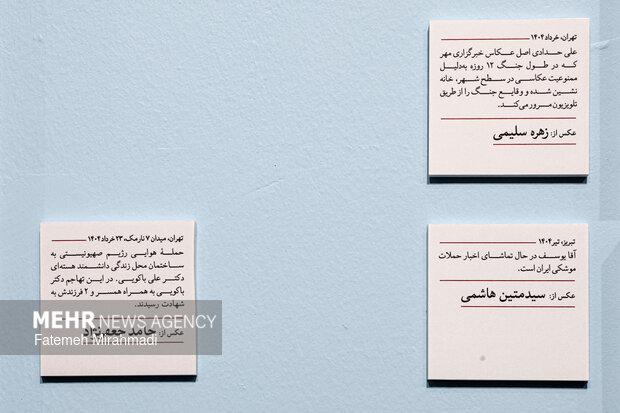 تهران، خرداد ۱۴۰۴
علی حدادی اصل عکاس خبرگزاری مهر
که در طول جنگ ۱۲ روزه به‌دلیل
ممنوعیت عکاسی در سطح شهر، خانه
نشین شده و وقایع جنگ را از طریق
تلویزیون مرور می‌کند.
عکس از: زهره سلیمی
تبریز، تیر ۱۴۰۴
آقا یوسف در حال تماشای اخبار حملات
موشکی ایران است.
عکس از: سیدمتین هاشمی
تهران، میدان ۷ نارمک، ۲۳ خرداد ۱۴۰۴
حملۀ هوایی رژیم صهیونیستی به
ساختمان محل زندگی دانشمند هسته‌ای
دکتر علی باکویی. در این تهاجم دکتر
باکویی به همراه همسر و ۲ فرزندش به
شهادت رسیدند.
عکس از: حامد جعفرنژاد
MEHR NEWS AGENCY
Fatemeh Miranmadi